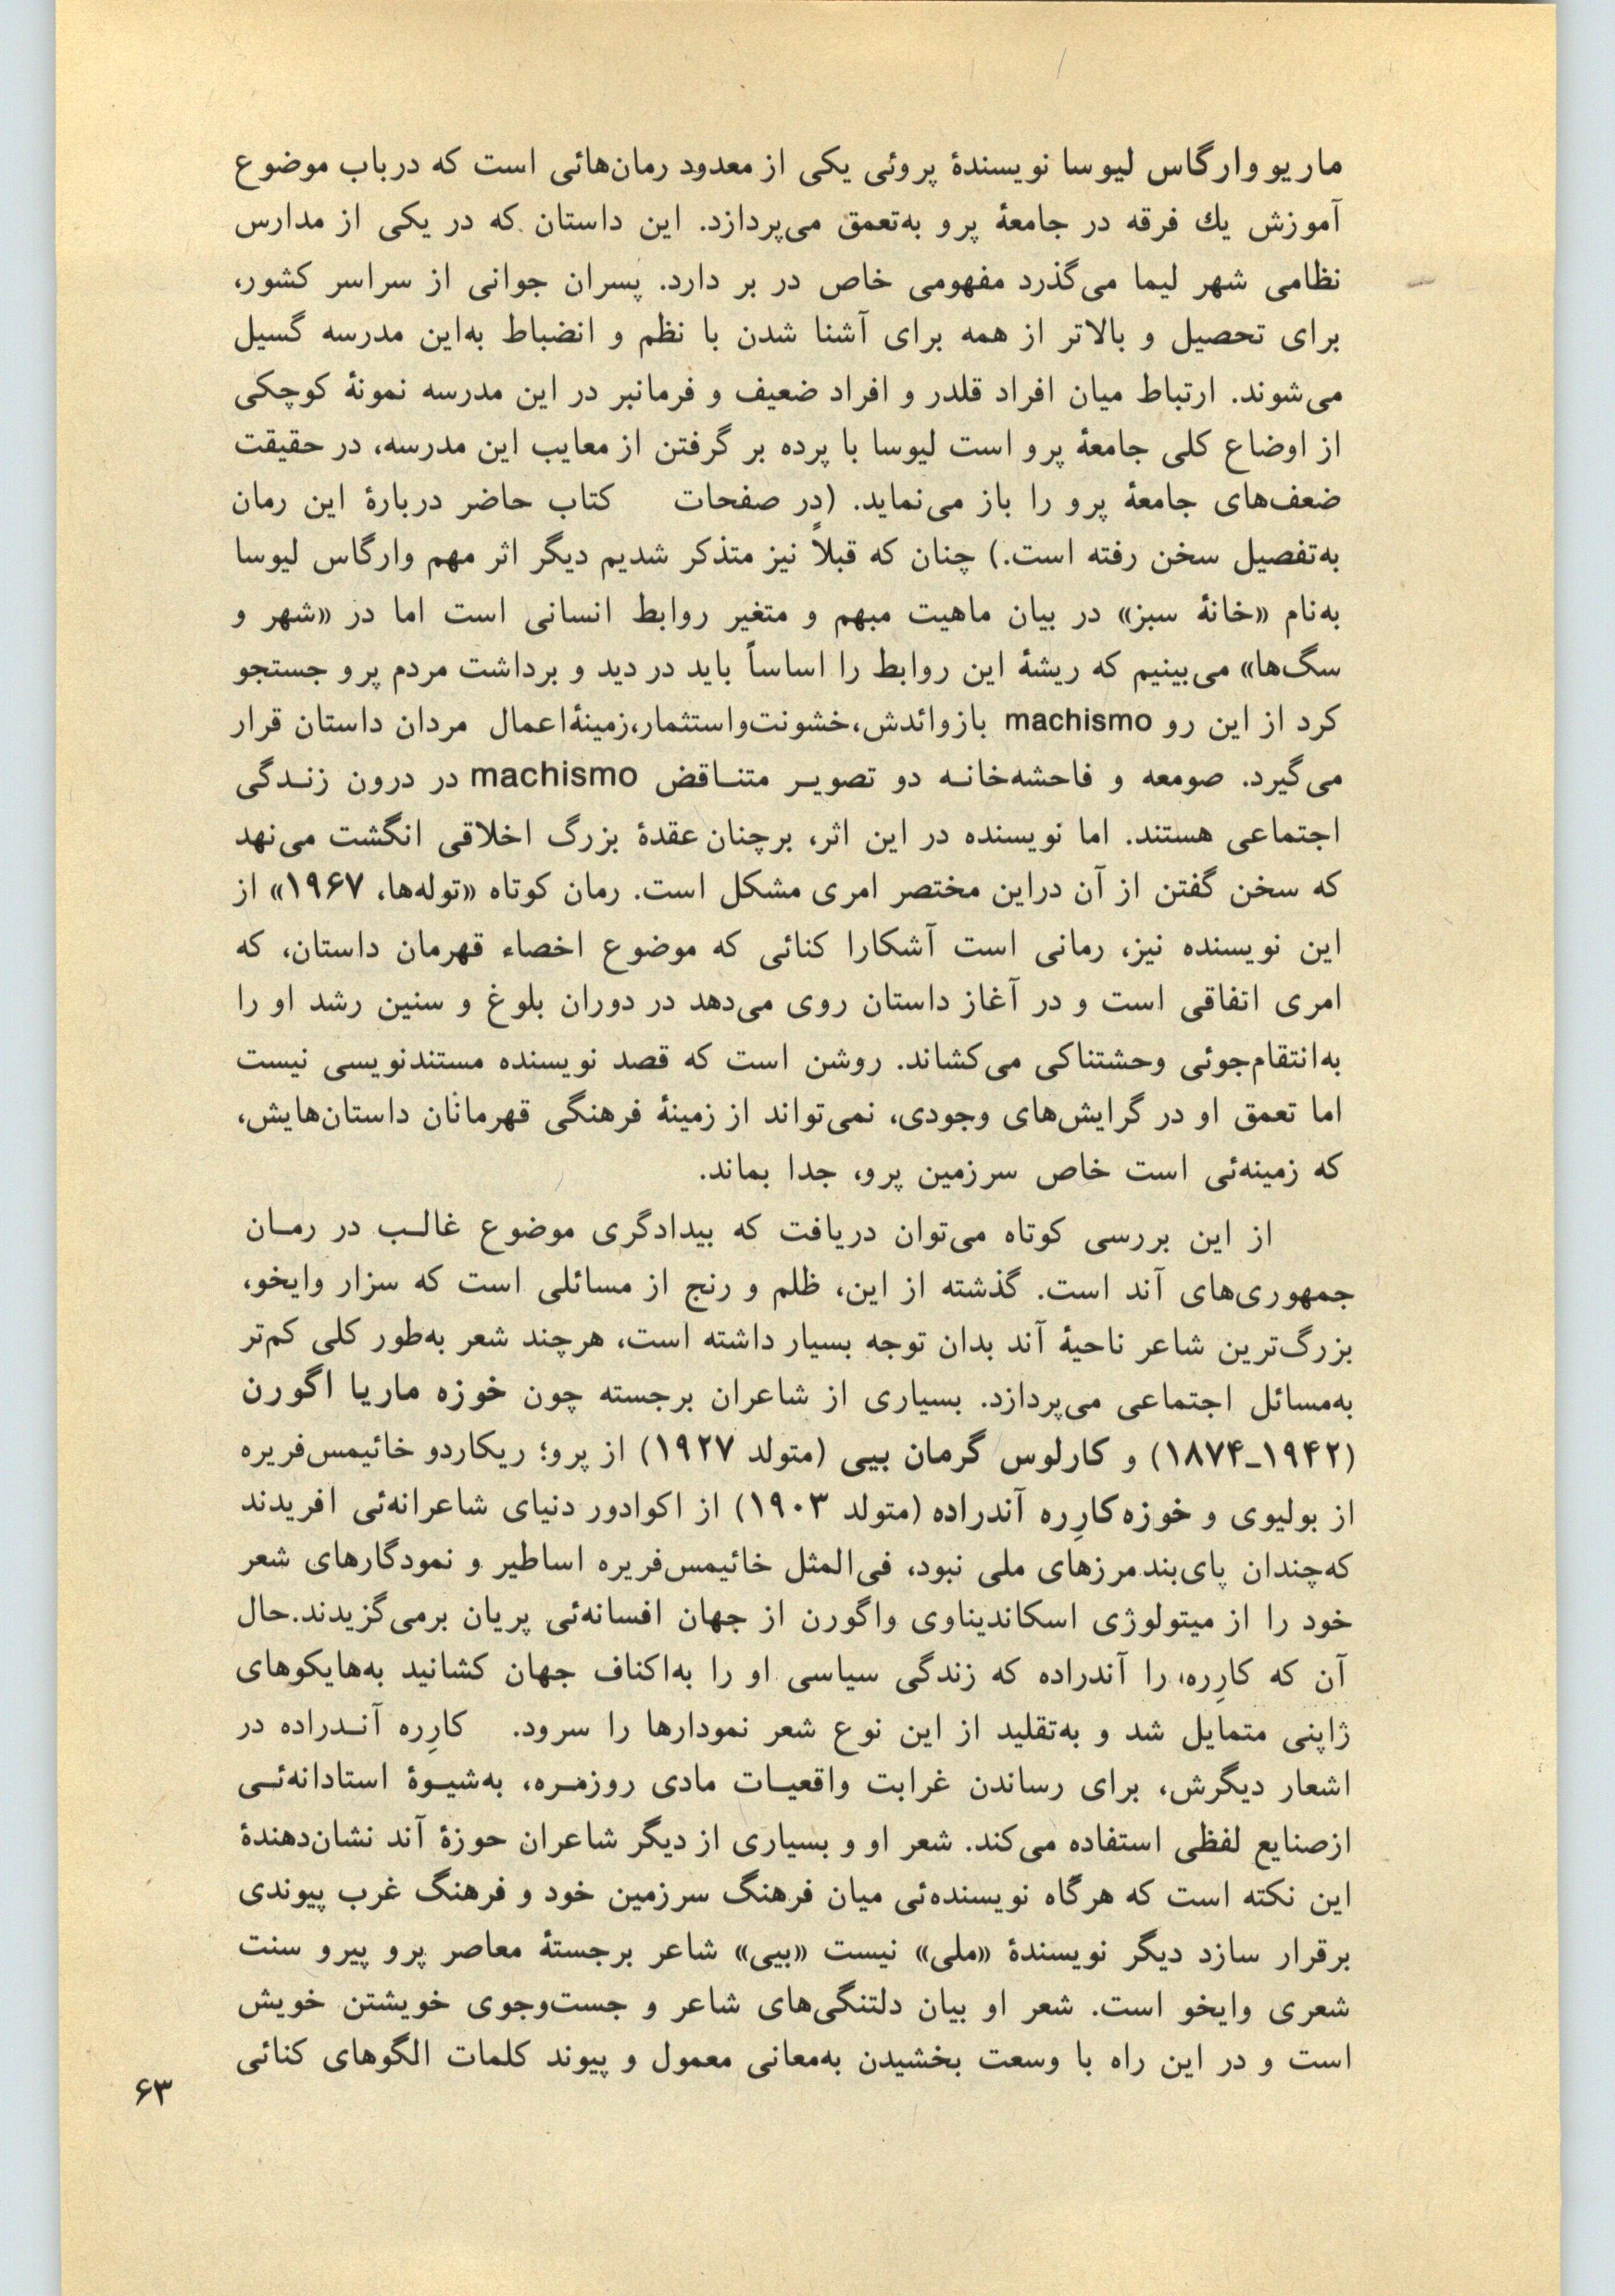 ماریو وارگاس لیوسا نویسندۀ پروئی یکی از معدود رمان‌هائی است که درباب موضوع
آموزش یك فرقه در جامعۀ پرو به‌تعمق می‌پردازد. این داستان که در یکی از مدارس
نظامی شهر لیما می‌گذرد مفهومی خاص در بر دارد. پسران جوانی از سراسر کشور،
برای تحصیل و بالاتر از همه برای آشنا شدن با نظم و انضباط به‌این مدرسه گسیل
می‌شوند. ارتباط میان افراد قلدر و افراد ضعیف و فرمانبر در این مدرسه نمونۀ کوچکی
از اوضاع کلی جامعۀ پرو است لیوسا با پرده بر گرفتن از معایب این مدرسه، در حقیقت
ضعف‌های جامعۀ پرو را باز می‌نماید. (در صفحات    کتاب حاضر دربارۀ این رمان
به‌تفصیل سخن رفته است.) چنان که قبلاً نیز متذکر شدیم دیگر اثر مهم وارگاس لیوسا
به‌نام «خانۀ سبز» در بیان ماهیت مبهم و متغیر روابط انسانی است اما در «شهر و
سگ‌ها» می‌بینیم که ریشۀ این روابط را اساساً باید در دید و برداشت مردم پرو جستجو
کرد از این رو machismo بازوائدش،خشونت‌واستثمار،زمینۀاعمال مردان داستان قرار
می‌گیرد. صومعه و فاحشه‌خانـه دو تصویـر متنـاقض machismo در درون زنـدگی
اجتماعی هستند. اما نویسنده در این اثر، برچنان عقدۀ بزرگ اخلاقی انگشت می‌نهد
که سخن گفتن از آن دراین مختصر امری مشکل است. رمان کوتاه «توله‌ها، ۱۹۶۷» از
این نویسنده نیز، رمانی است آشکارا کنائی که موضوع اخصاء قهرمان داستان، که
امری اتفاقی است و در آغاز داستان روی می‌دهد در دوران بلوغ و سنین رشد او را
به‌انتقام‌جوئی وحشتناکی می‌کشاند. روشن است که قصد نویسنده مستندنویسی نیست
اما تعمق او در گرایش‌های وجودی، نمی‌تواند از زمینۀ فرهنگی قهرمانان داستان‌هایش،
که زمینه‌ئی است خاص سرزمین پرو، جدا بماند.
از این بررسی کوتاه می‌توان دریافت که بیدادگری موضوع غالـب در رمـان
جمهوری‌های آند است. گذشته از این، ظلم و رنج از مسائلی است که سزار وایخو،
بزرگ‌ترین شاعر ناحیۀ آند بدان توجه بسیار داشته است، هرچند شعر به‌طور کلی کم‌تر
به‌مسائل اجتماعی می‌پردازد. بسیاری از شاعران برجسته چون خوزه ماریا اگورن
(۱۹۴۲ـ۱۸۷۴) و کارلوس گرمان بیی (متولد ۱۹۲۷) از پرو؛ ریکاردو خائیمس‌فریره
از بولیوی و خوزه‌کارِره آندراده (متولد ۱۹۰۳) از اکوادور دنیای شاعرانه‌ئی افریدند
که‌چندان پای‌بند مرزهای ملی نبود، فی‌المثل خائیمس‌فریره اساطیر و نمودگارهای شعر
خود را از میتولوژی اسکاندیناوی واگورن از جهان افسانه‌ئی پریان برمی‌گزیدند.حال
آن که کارِره، را آندراده که زندگی سیاسی او را به‌اکناف جهان کشانید به‌هایکوهای
ژاپنی متمایل شد و به‌تقلید از این نوع شعر نمودارها را سرود. کارِره آنـدراده در
اشعار دیگرش، برای رساندن غرابت واقعیـات مادی روزمـره، به‌شیـوۀ استادانه‌ئـی
ازصنایع لفظی استفاده می‌کند. شعر او و بسیاری از دیگر شاعران حوزۀ آند نشان‌دهندۀ
این نکته است که هرگاه نویسنده‌ئی میان فرهنگ سرزمین خود و فرهنگ غرب پیوندی
برقرار سازد دیگر نویسندۀ «ملی» نیست «بیی» شاعر برجستۀ معاصر پرو پیرو سنت
شعری وایخو است. شعر او بیان دلتنگی‌های شاعر و جست‌وجوی خویشتن خویش
است و در این راه با وسعت بخشیدن به‌معانی معمول و پیوند کلمات الگوهای کنائی
۶۳